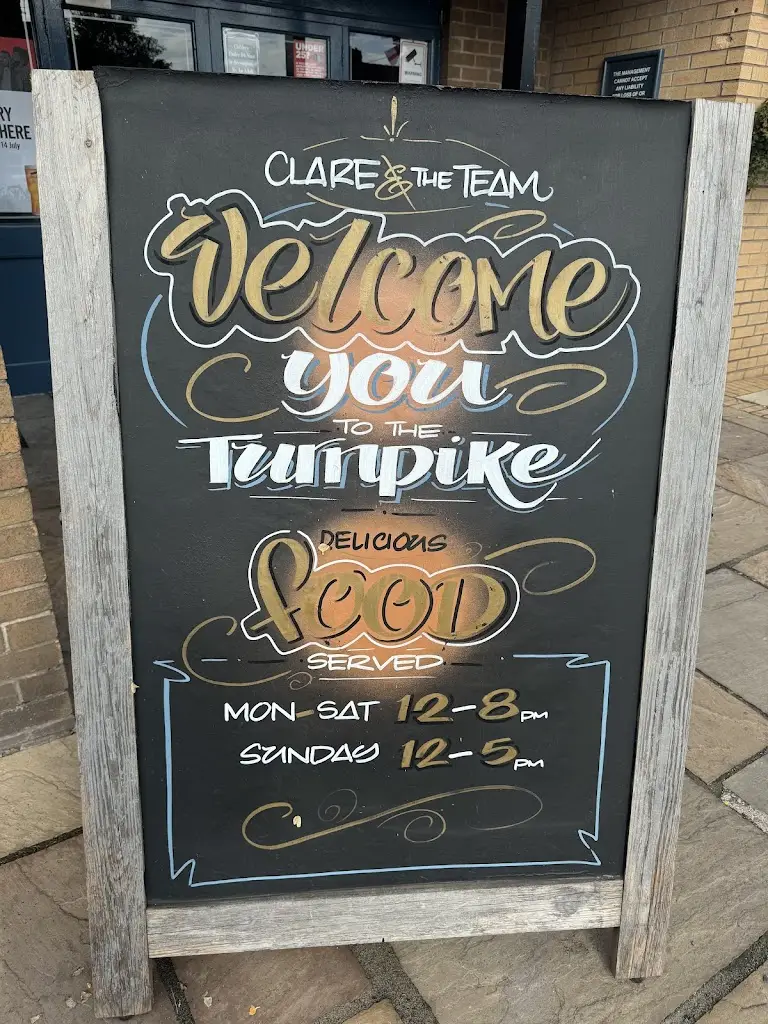 UNDER
25?
RY
HERE
14 July
THE MANAGEMENT
CANNOT ACCEPT
ANY LIABILITY
CLARE & THE TEAM
Welcome
you
TO THE
Turnpike
DELICIOUS
FOOD
SERVED
MON-SAT 12-8PM
SUNDAY 12-5PM